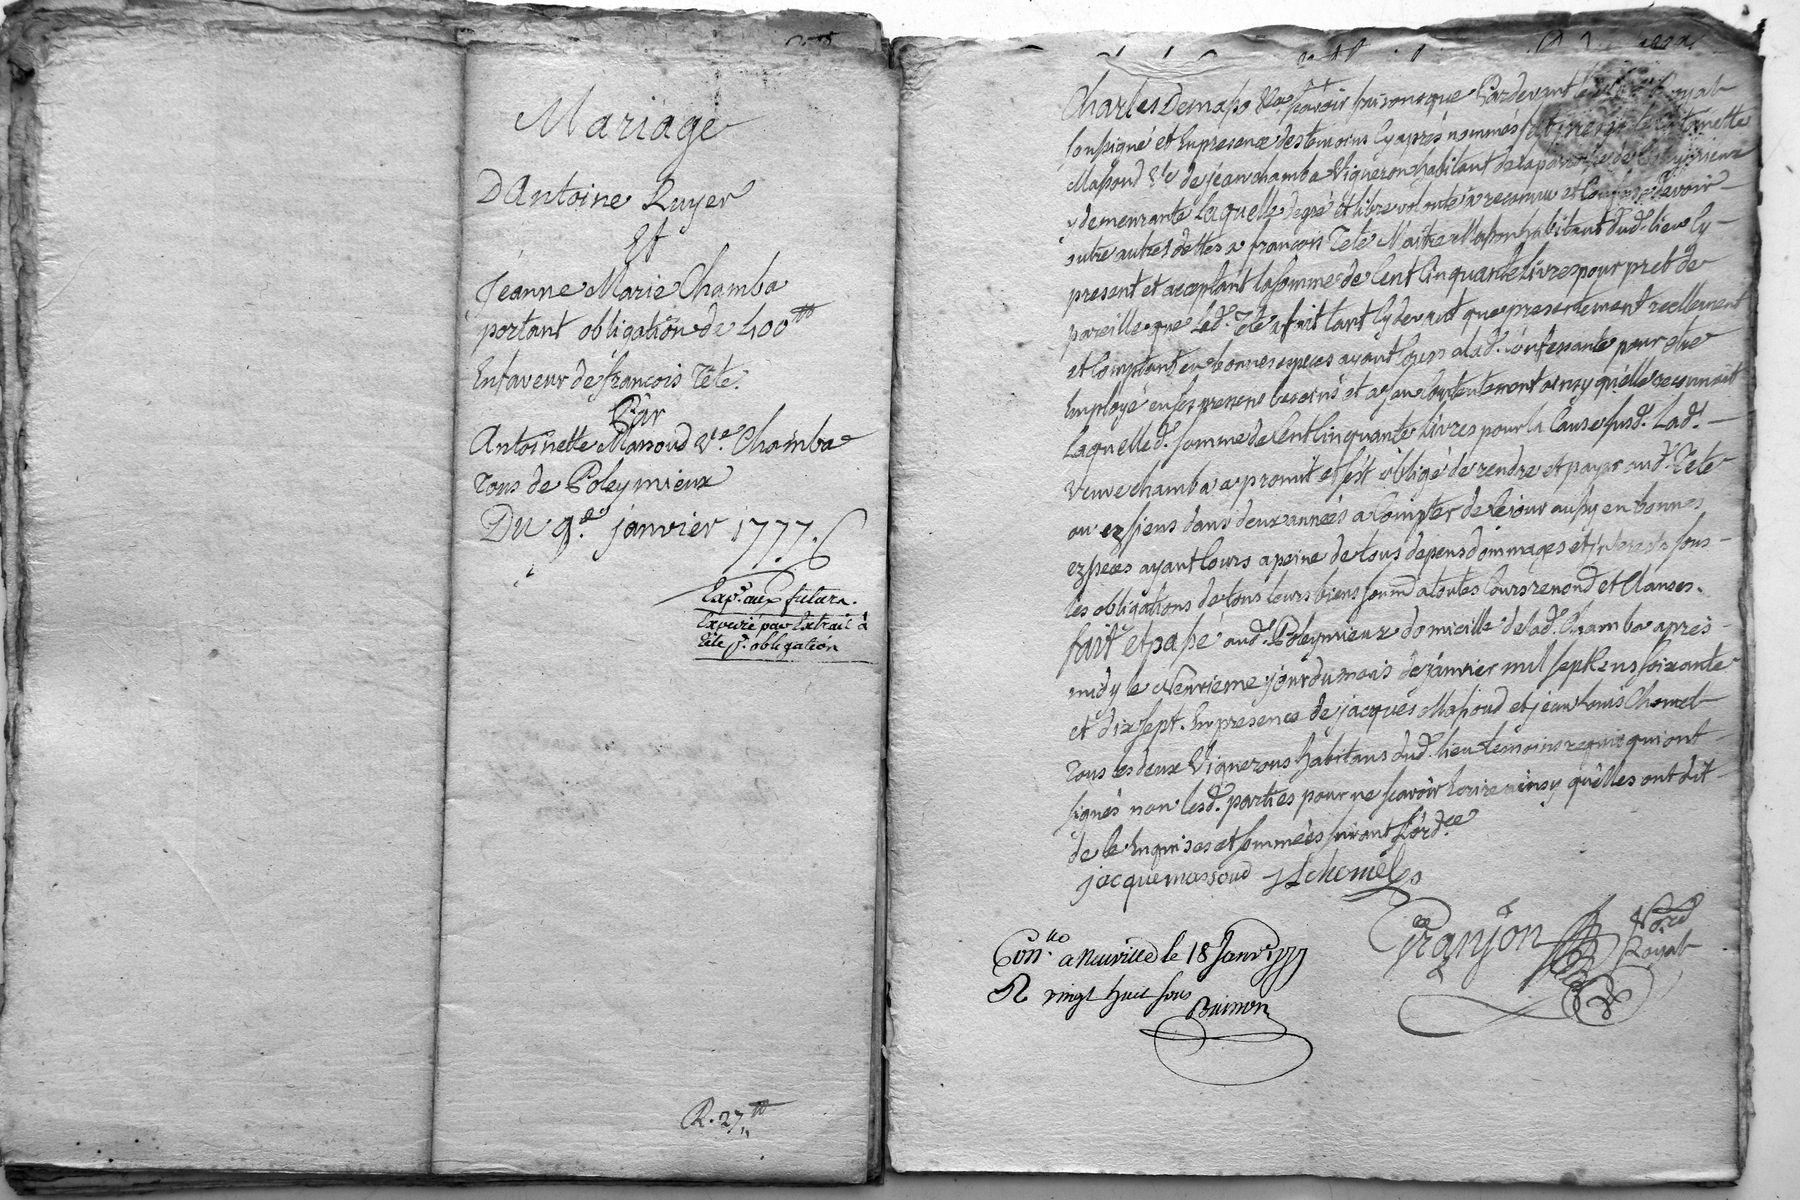 Mariage
D'Antoine Ruyer
Et
Jeanne Marie Chamba
portant obligation de 400tt
En faveur de françois Tête.
Par
Antoinette Massoud Ve. Chamba
Tous de Poleymieux
Du 9e. janvier 1777.
Exp. aux futurs.
Expédié par Extrait à
Tête pr. obligation
R. 27tt
Charles Demasso &a sçavoir faisons que Pardevant le Royal
soussigné et En presence des temoins Cy après nommés
Massoud Ve. de jean chamba Vigneron habitant de la paroisse de Poleymieux
y demeurante Laquelle de gré et libre volonté a reconnu et Confessé devoir
outre autres dettes a françois Tete Maitre Masson habitant dud. lieu Cy
present et acceptant la somme de Cent Cinquante livres pour pret de
pareille que led. Tete a fait tant Cy devant que presentement reellement
et Comptant en bonnes especes ayant Cours a lad. Confessante pour etre
Employé en ses besoins et a son Contentement ainsy qu'elle reconnoit
Laquelle d. somme de Cent Cinquante Livres pour la Cause susd. Lad.
Veuve chamba a promit et s'est obligé de rendre et payer aud. Tete
ou ez siens dans deux années a Compter de Ce jour aussy en bonnes
especes ayant Cours a peine de tous depens dommages et interests sous
les obligations de tous leurs biens soumis a toutes Cours renonc. et Clauses.
fait et passé aud. Poleymieux domicille de lad. Chamba apres
midy le Neuvieme jour du mois de janvier mil sept Cens soixante
et dix sept. En presence de jacques Massoud et jean Louis Chomel
Tous les deux Vignerons habitans dud. lieu temoins requis qui ont
signés non lesd. parties pour ne sçavoir Ecrire ainsy qu'elles ont dit
de ce Enquises et sommées suivant L'ordce
jacque massoud JL chomel
Granjon Nore
Royal
Conllé a Neuville le 18 Janvr 1777
R vingt huit sous
Buisson